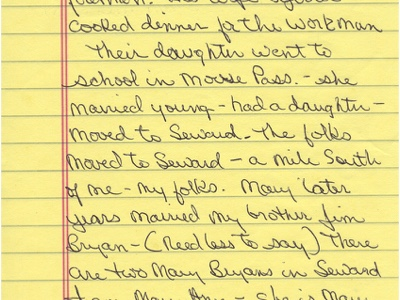 cooked dinner for the workman
Their daughter went to
school in Moose Pass. - she
married young - had a daughter -
moved to Seward - The folks
moved to Seward - a mile South
of me - my folks. Mary later
years married my brother Jim
Bryan - (Needless to say) There
are two Mary Bryans in Seward